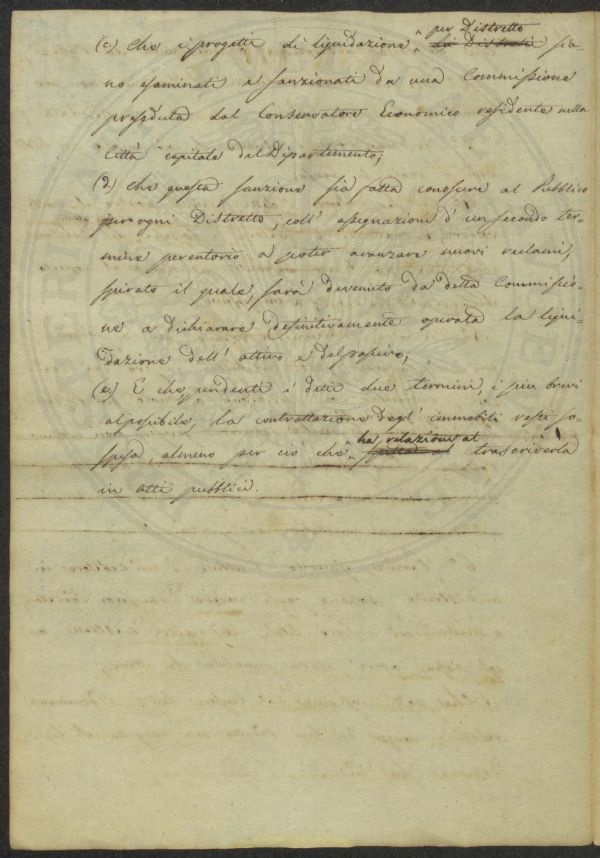 (c.) Che i progetti di liquidazione per Distretto sia-
no esaminati e sanzionati da una Commissione
preseduta dal Conservatore Economico residente nella
Città capitale del Dipartimento;
(d.) che questa sanzione sia fatta conoscere al Pubblico
per ogni Distretto, coll' assegnazione d' un secondo ter-
mine perentorio a poter avanzare nuovi reclami,
spirato il quale, sarà devenuto da detta Commissio-
ne a dichiarare definitivamente operata la liqui-
dazione dell' attivo e del passivo;
(e.) E che pendenti i detti due termini, i piu brevi
al possibile, la contrattazione degl' immobili resti so-
spesa, almeno per ciò che ha relazione al trascriverla
in atti pubblici.